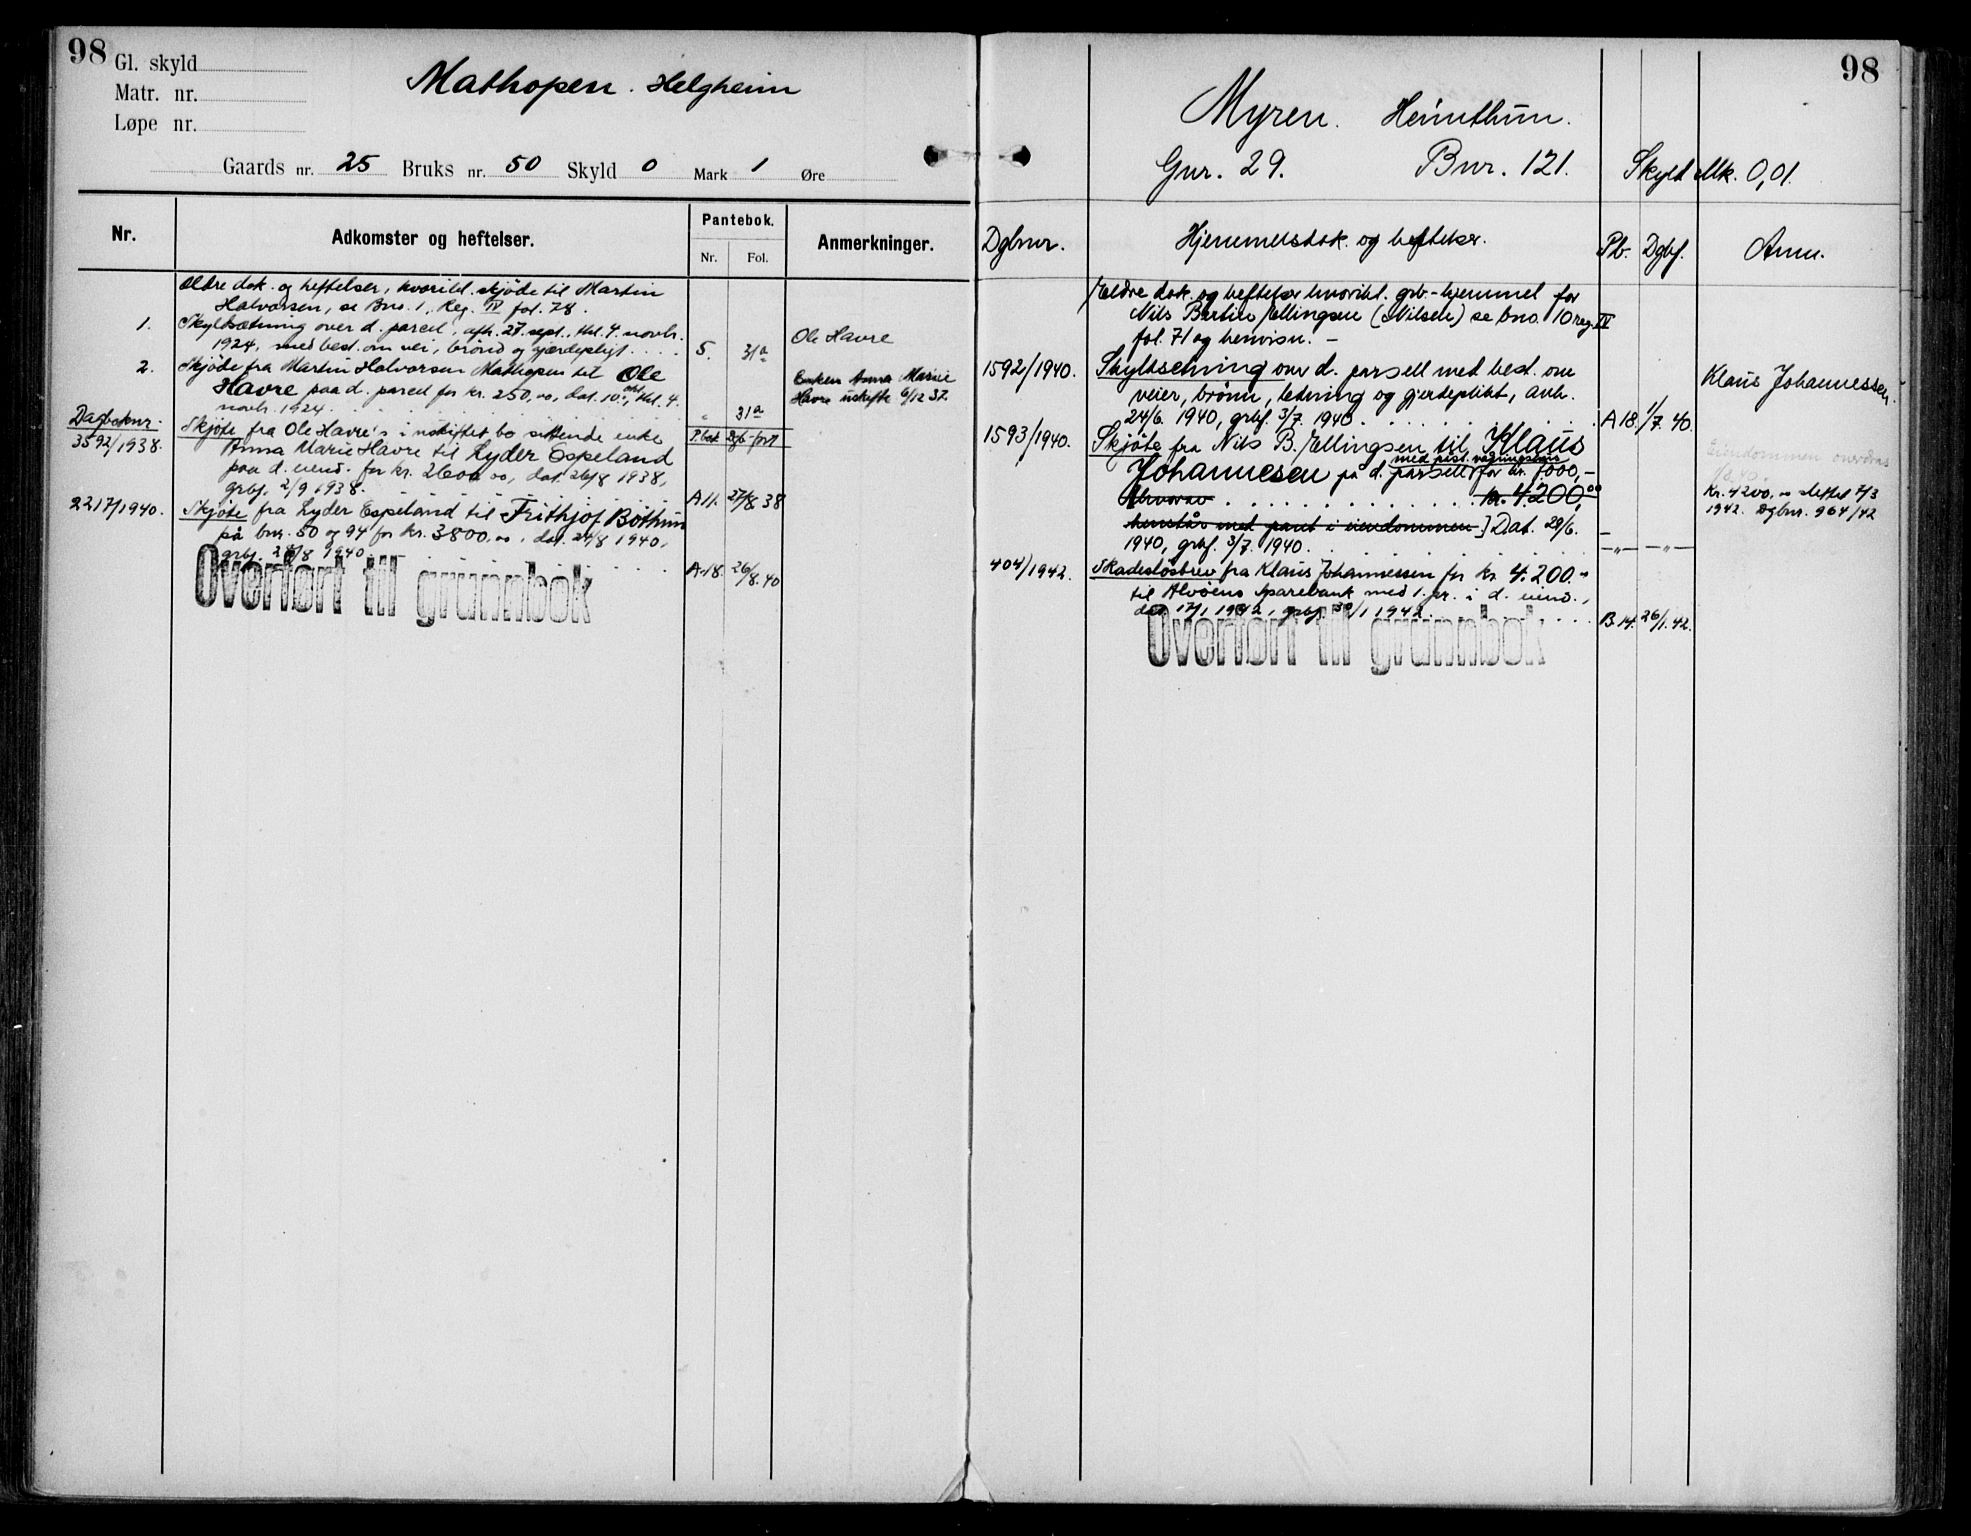 98
Gl. skyld
Matr. nr.
Løpe nr.
Mathopen. Helgheim
Gaards nr. 25 Bruks nr. 50 Skyld 0 Mark 1 Øre
Nr.
Adkomster og heftelser.
Pantebok.
Nr. Fol.
Anmerkninger.
Ældre dok. og heftelser, hvoribl. skjøde til Martin
Halvorsen, se Bno. 1, Reg. IV fol. 78.
1. Skyldsætning over d. parcel, afh. 27. sept., thl. 4. novbr.
1924, med best. om vei, brønd og gjærdepligt. 5. 31a
Ole Havre
2. Skjøde fra Martin Halvorsen Mathopen til Ole
Havre paa d. parcel for kr. 250,00, dat. 10. okt., thl. 4.
novbr. 1924. " 31a
Enken Anna Marie
Havre uskifte 6/12 37.
Dagboknr. P.bok Dgb-ført
3592/1938. Skjøte fra Ole Havre's i uskiftet bo sittende enke
Anna Marie Havre til Lyder Espeland
paa d. eiend. for kr. 2600,00, dat. 26/8 1938,
grbf. 2/9 1938. A 11. 27/8 38
2217/1940. Skjøte fra Lyder Espeland til Frithjof Bøthun
på bnr. 50 og 94 for kr. 3800,00, dat. 24/8 1940,
grbf. 28/8 1940. A.18. 26/8.40
Overført til grunnbok
98
Myren. Heimthun.
Gnr. 29. Bnr. 121. Skyld Mk. 0,01.
Dgbnr. Hjemmelsdok. og heftelser. Pb. Dgbf. Anm.
Ældre dok. og heftelser hvoribl. grb.-hjemmel for
Nils Bertin Ellingsen (Nilsen) se bno. 10 reg. IV
fol. 71 og henvisn. —
1592/1940. Skyldsetning over d. parsell med best. om
veier, brønn, ledning og gjerdeplikt, avh.
24/6. 1940, grbf. 3/7. 1940. A 18. 1/7. 40.
Klaus Johannessen.
1593/1940. Skjøte fra Nils B. Ellingsen til Klaus
Johannesen på d. parsell for kr. 1000,—
Hvorav kr. 4200,00
henstår med pant i eiendommen] Dat. 29/6.
1940, grbf. 3/7. 1940. — — " — — " —
Eiendommen
Kr. 4200,00 slettet 7/3
1942. Dgbnr. 964/42
404/1942. Skadesløsbrev fra Klaus Johannessen for kr. 4.200.-
til Alvøens Sparebank med 1. pr. i d. eiend.,
dat. 17/1 1942, grbf. 30/1 1942. B 14. 26/1. 42.
Overført til grunnbok